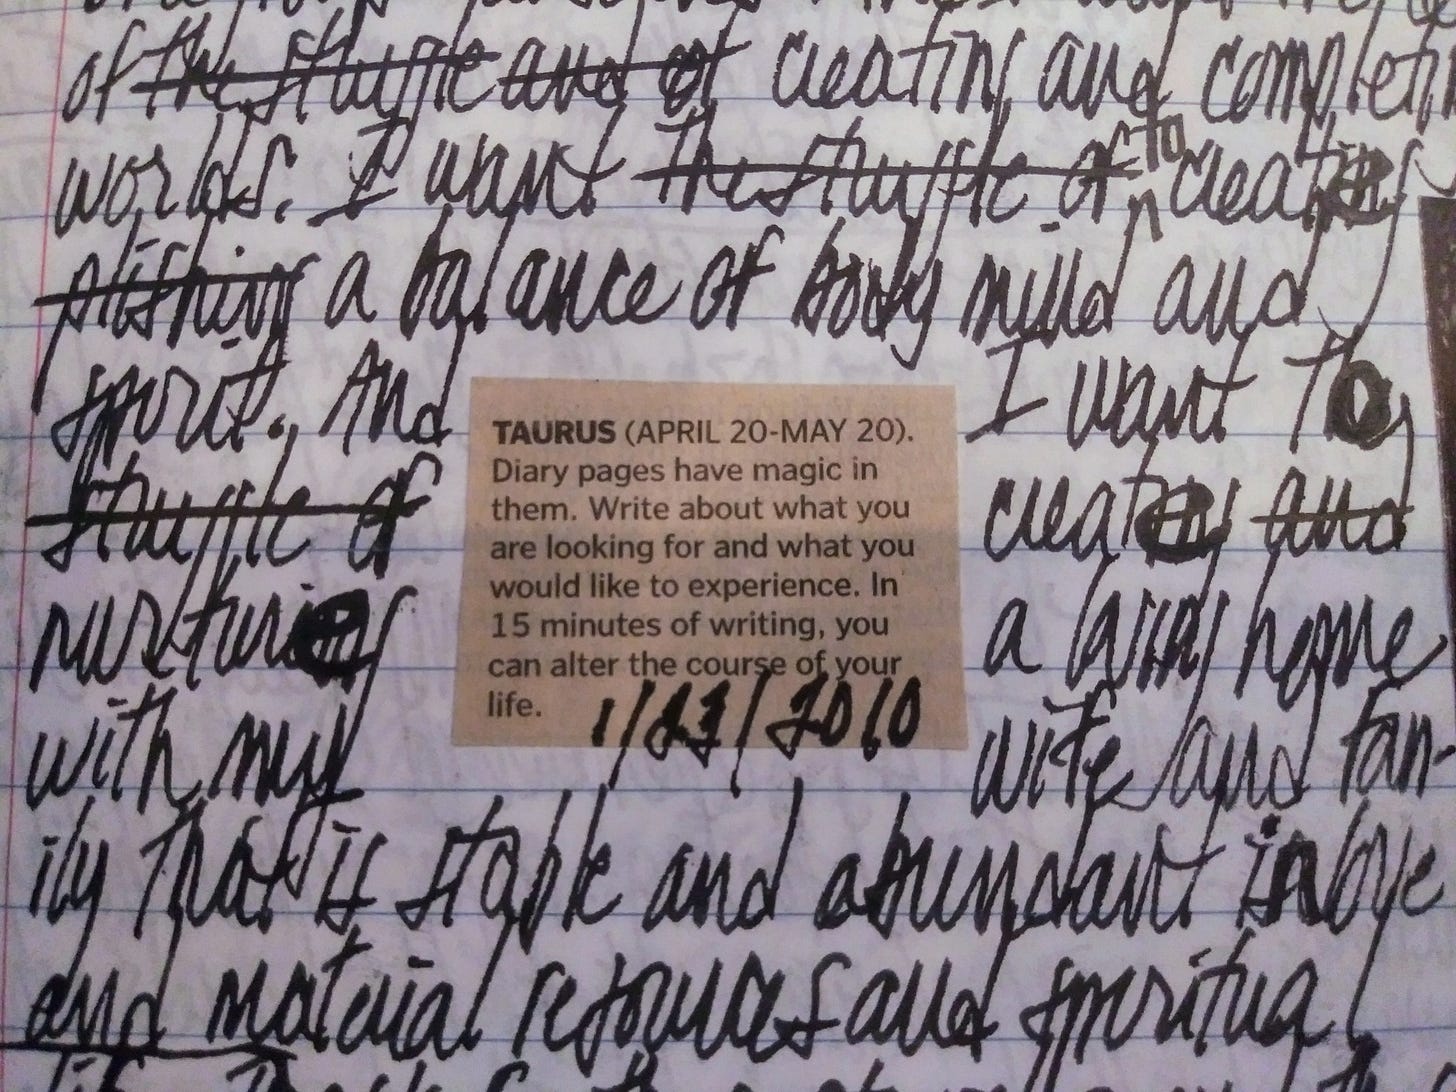 of the struggle and of creating and completin
works. I want the struggle of to creating
plishing a balance of body mind and
spirit. And I want to
struggle of creating and
nurturing a loving home
with my wife and fam-
ily that is stable and abundant in love
and material resources and spiritual
TAURUS (APRIL 20-MAY 20).
Diary pages have magic in
them. Write about what you
are looking for and what you
would like to experience. In
15 minutes of writing, you
can alter the course of your
life. 1/23/2010